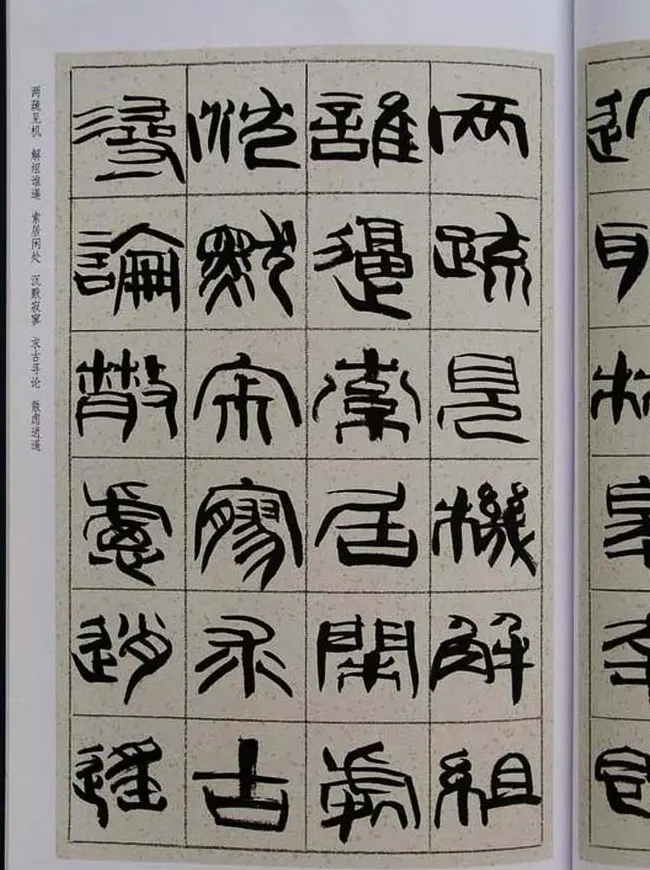 两疏见機解組
誰逼索居閑處
沈默寂寥求古
尋論散慮逍遥
两疏见机 解组谁逼 索居闲处 沉默寂寥 求古寻论 散虑逍遥